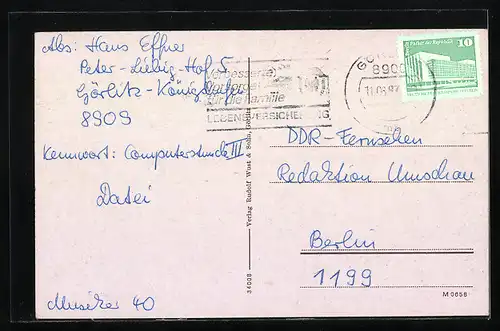 Abs: Hans Effner
Peter-Liebig-Hof 5
Görlitz-Königshufen
8909
Kennwort: Computerstunde III
Datei
Musiker 40
Verbesserte
Vorsorge
für die Familie
LEBENSVERSICHERUNG
8900
11.08.87
10
DDR-Fernsehen
Redaktion Umschau
Berlin
1199
34008 Verlag Rudolf Wust & Sohn, Görlitz
M 0658